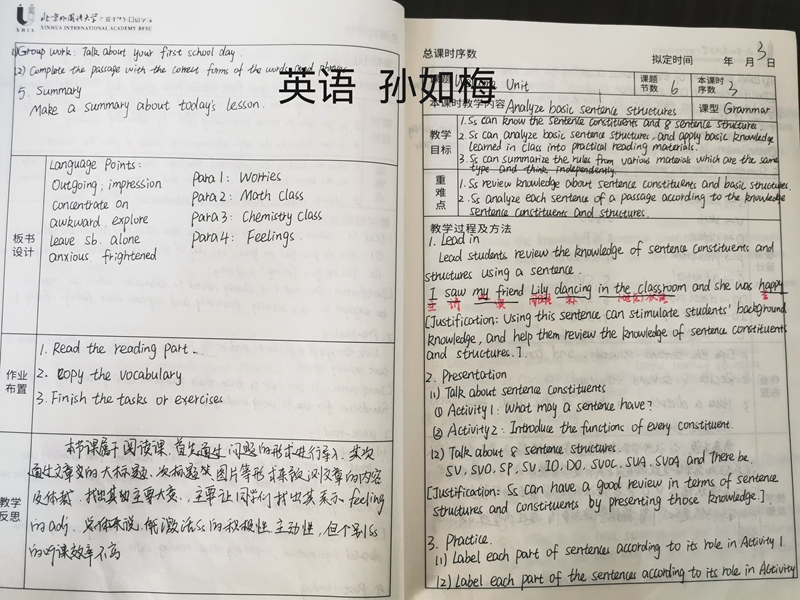 XHIA
XINHUA INTERNATIONAL ACADEMY BFSU
英语 孙如梅
(1) Group work: Talk about your first school day.
(2) Complete the passage with the correct forms of the words and phrases
5. Summary
Make a summary about today's lesson.
板书设计
Language Points:
Outgoing, impression
concentrate on
awkward explore
leave sb. alone
anxious frightened
Para 1: Worries
Para 2: Math Class
Para 3: Chemistry Class
Para 4: Feelings
作业布置
1. Read the reading part.
2. copy the vocabulary
3. Finish the tasks or exercises
教学反思
本节课属于阅读课,首先通过问题的形式进行导入,其次
通过文章的大标题、次标题以图片等形式来预测文章的内容
及体裁,找出其主要大意,主要让同学们找出其表示feeling
的adj. 总体来说,能激活Ss的积极性,主动性,但个别Ss
的听课效率不高
总课时序数
拟定时间 年 月 3 日
Unit
课题节数 6
本课时序数 3
本课时教学内容 Analyze basic sentence structures
课型 Grammar
教学目标
1. Ss can know the sentence constituents and 8 sentence structures
2. Ss can analyze basic sentence structures, and apply basic knowledge
learned in class into practical reading materials.
3. Ss can summarize the rules from various materials which are the same
type and think independently.
重难点
1. Ss review knowledge about sentence constituents and basic structures.
2. Ss analyze each sentence of a passage according to the knowledge
sentence constituents and structures.
教学过程及方法
1. Lead in
Lead students review the knowledge of sentence constituents and
structures using a sentence.
I saw my friend Lily dancing in the classroom and she was happy
[Justification: Using this sentence can stimulate students' background
knowledge, and help them review the knowledge of sentence constituents
and structures.].
2. Presentation
(1) Talk about sentence constituents
① Activity 1: What may a sentence have?
② Activity 2: Introduce the functions of every constituent.
(2) Talk about 8 sentence structures
SV, SVO, SP, SV, IO, DO, SVOC, SVA, SVOA and There be.
[Justification: Ss can have a good review in terms of sentence
structures and constituents by presenting those knowledge.]
3. Practice.
(1) Label each part of sentences according to its role in Activity 1.
(2) Label each part of the sentences according to its role in Activity